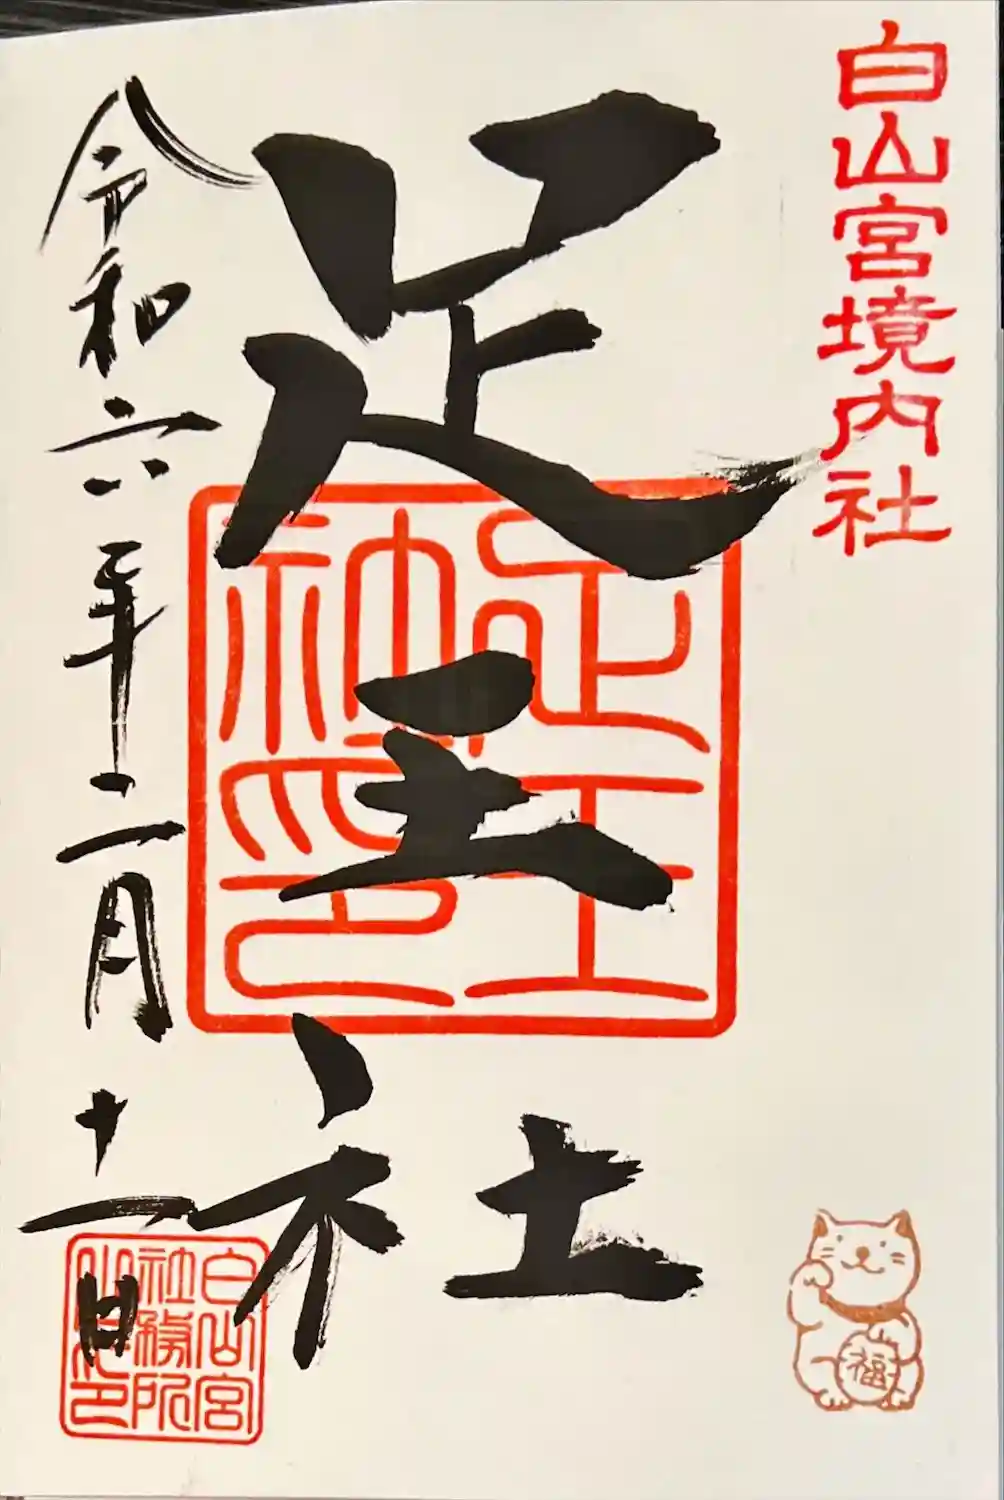 白山宮境内社
足王社
足王
神印
令和六年二月十一日
白山宮
社務所
之印
福